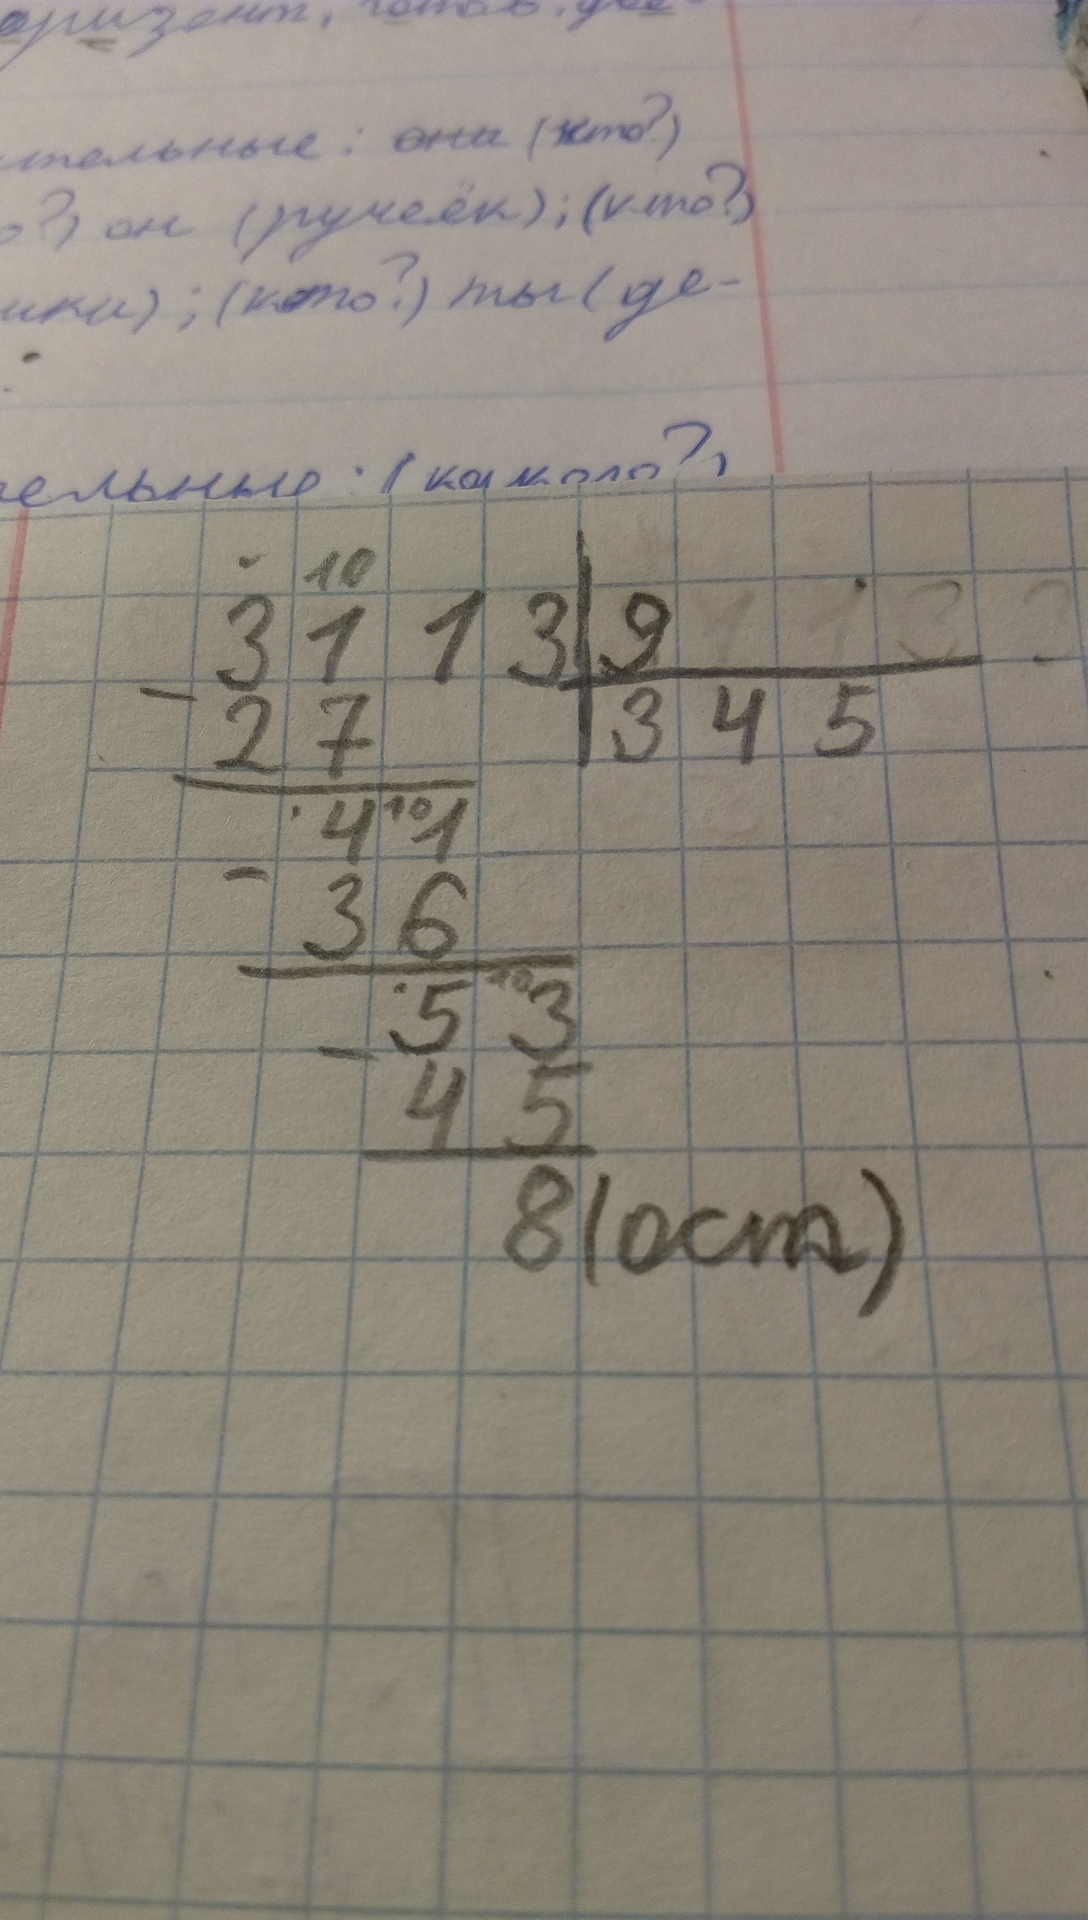 тельные: они (кто?)
он (ручеёк); (кто?)
ики); (кто?) ты (де-
ельные: (какого?)
10
3113 9
27 345
4 10 1
36
5 10 3
45
8 (ост)